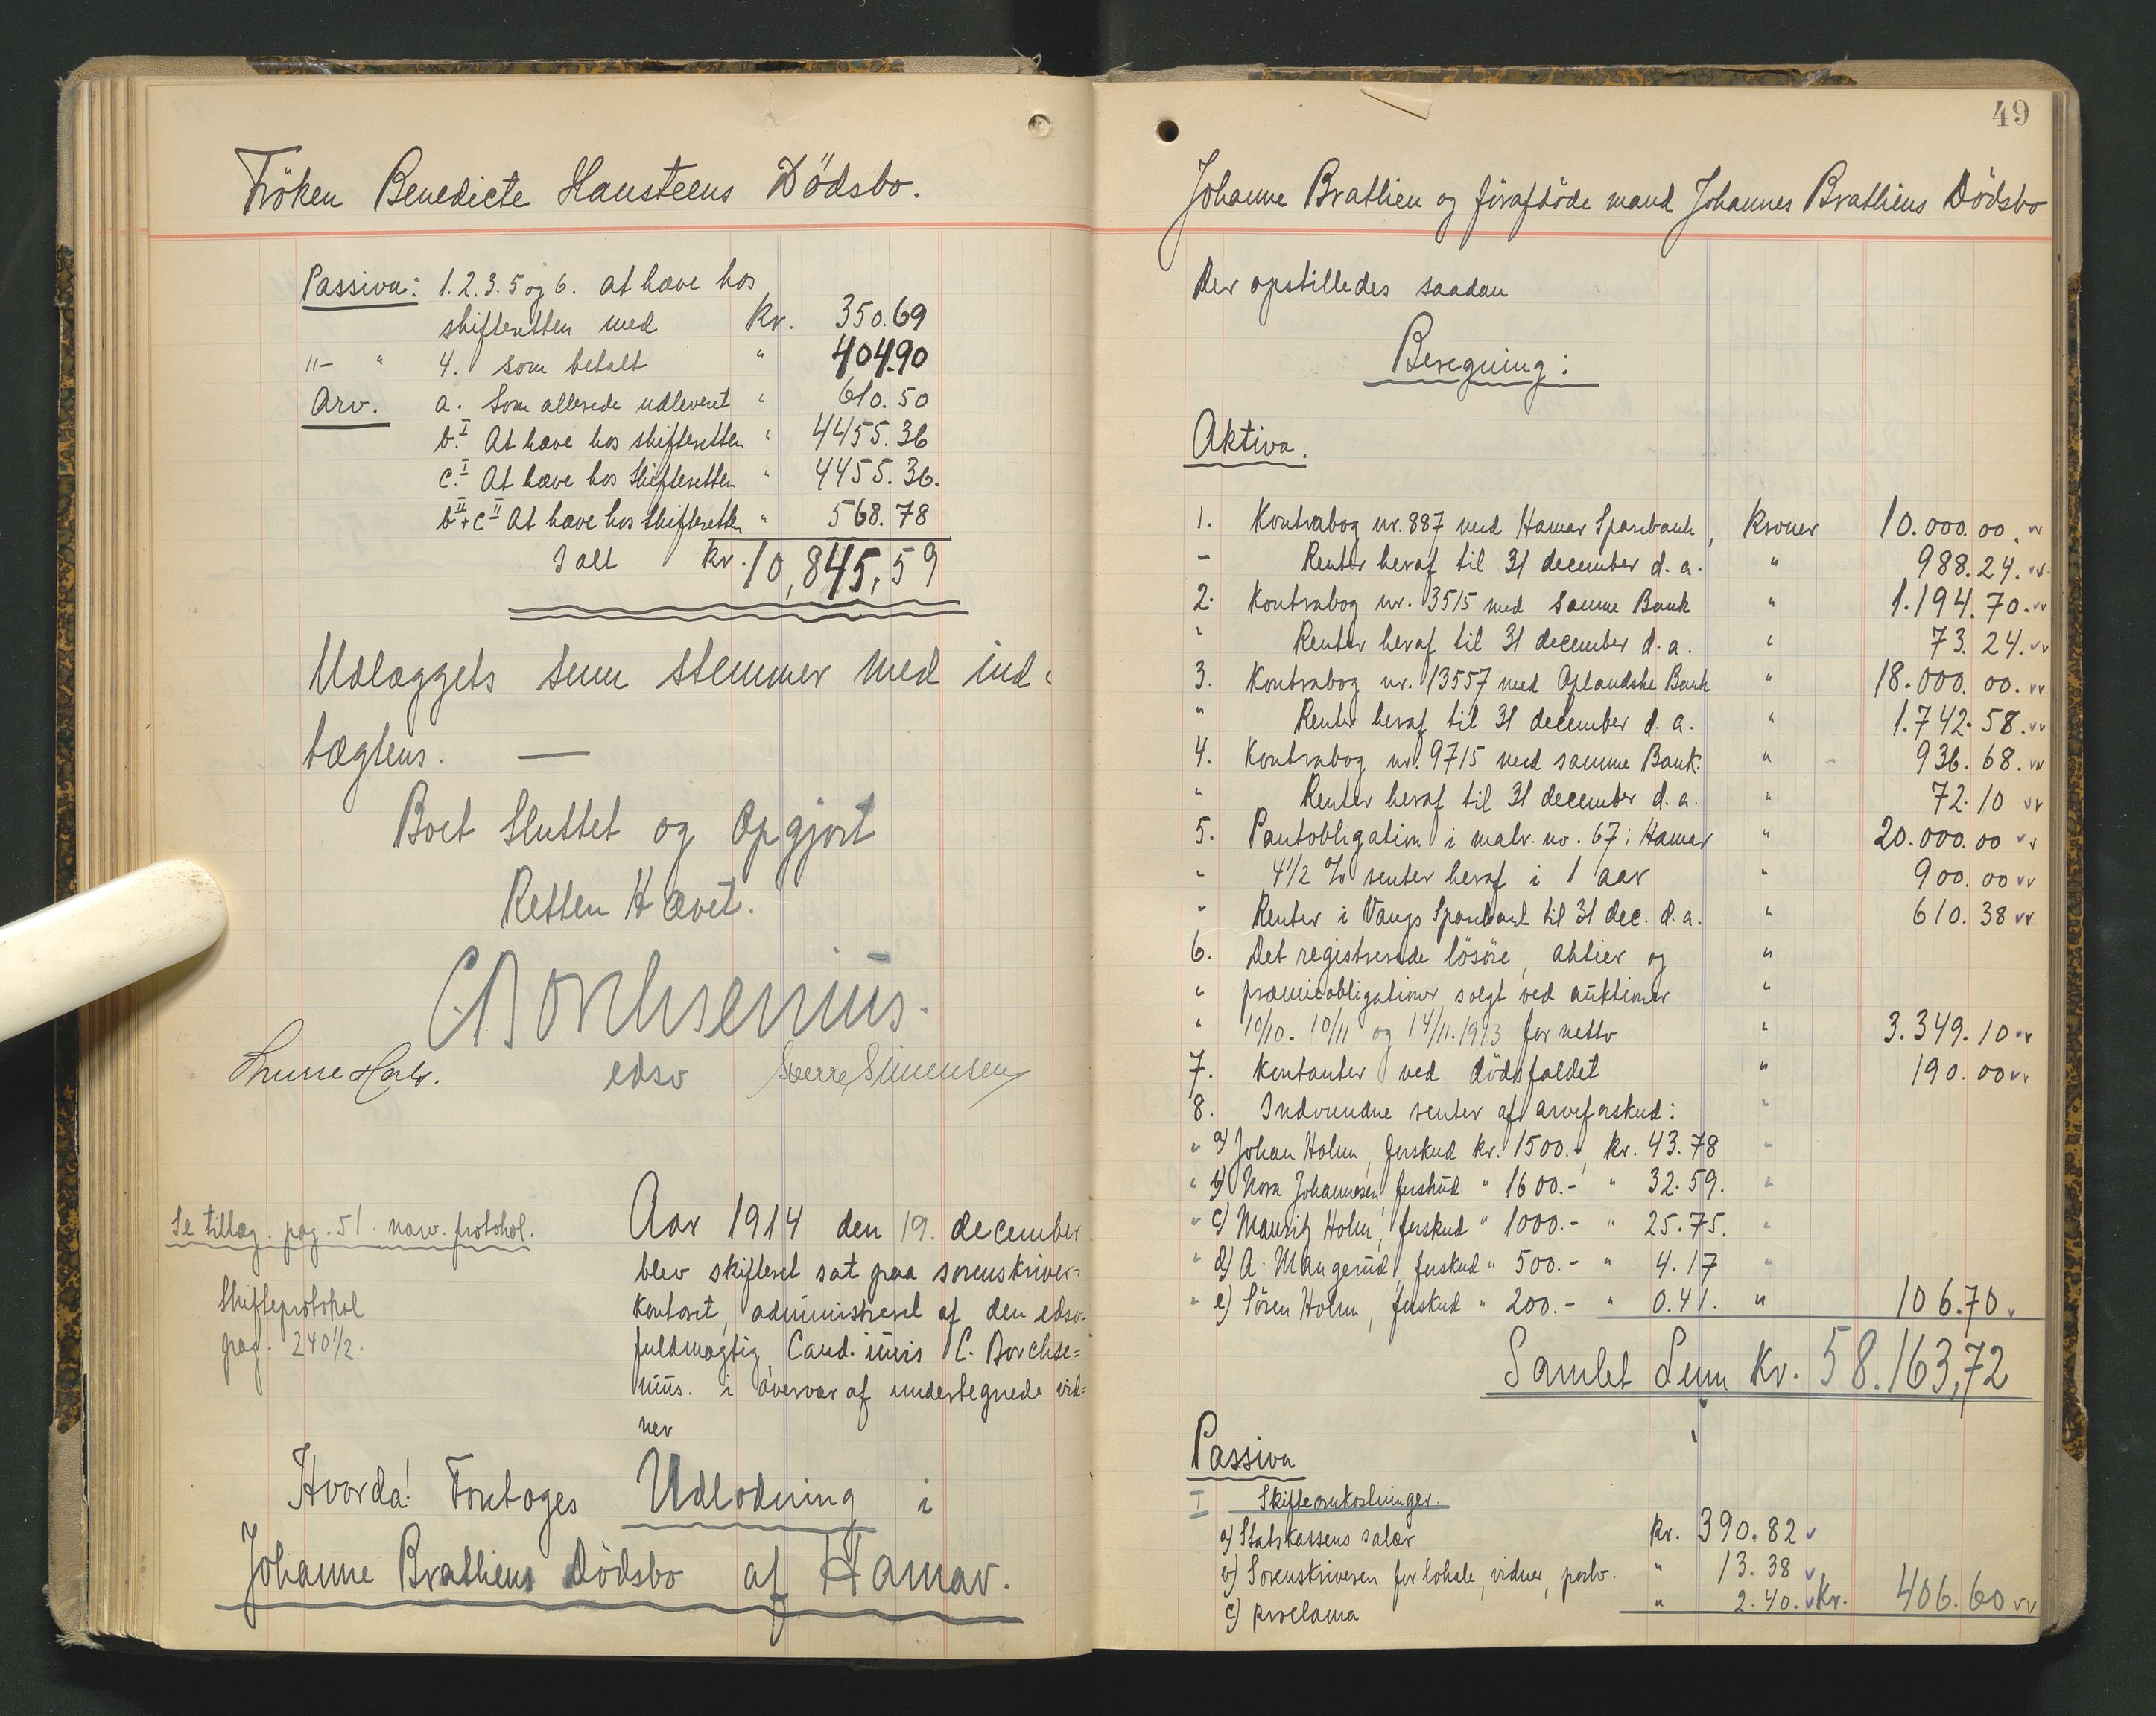 Fröken Benedicte Hansteens Dödsbo.
Passiva: 1. 2. 3. 5 og 6. at hæve hos
skifteretten med Kr. 350.69
"– " 4. som betalt " 404.90
Arv. a. Som allerede udleveret " 610.50
b.I At hæve hos skifteretten " 4455.36
c.I At hæve hos Skifteretten " 4455.36.
bII + cII At hæve hos Skifteretten " 568.78
I alt kr. 10,845,59
Udlæggets sum stemmer med ind-
tægtens. —
Boet Sluttet og Opgjort
Retten Hævet.
C Borchsenius.
edsv Sverre Simensen
Se tillæg. pag. 51. nærv. protokol.
Skifteprotokol
pag. 240 1/2.
Aar 1914 den 19. december
blev skifteret sat paa sorenskriver-
kontoret, administreret af den edsv.
fuldmægtig, Cand. juris C. Borchse=
nius. i overvær af undertegnede vid=
ner
Hvorda! Foretoges Udlodning i
Johanne Brathens Dödsbo af Hamar.
49
Johanne Brathen og föraftöde mand Johannes Brathens Dödsbo
Der opstilledes saadan
Beregning:
Aktiva.
1. Kontrabog nr. 887 med Hamar Sparebank, Kroner 10.000.00.
– Renter heraf til 31 december d. a. " 988.24.
2. Kontrabog nr. 3515 med Samme Bank " 1.194.70.
" Renter heraf til 31 december d. a. " 73.24.
3. Kontrabog nr. 13557 med Oplandske Bank " 18.000.00.
" Renter heraf til 31 december d. a. " 1.742.58.
4. Kontrabog nr. 9715 med samme Bank. " 936.68.
" Renter heraf til 31 december d. a. " 72.10
5. Pantobligation i matr. no. 67 i Hamar " 20.000.00
" 4 1/2 % renter heraf i 1 aar " 900.00
" Renter i Vangs Sparebank til 31 dec. d. a. " 610.38
6. Det registrerede lösöre, aktier og "
" præmieobligationer solgt ved auktioner "
" 10/10. 10/11 og 14/11. 1913 for netto " 3.349.10
7. Kontanter ved dödsfaldet " 190.00
8. Indvundne renter af arveforskud: "
" a) Johan Holm, forskud kr. 1500.-, kr. 43.78 "
" b) Nora Johannesen, forskud " 1600.- " 32.59. "
" c) Mauritz Holm, forskud " 1000.- " 25.75. "
" d) A. Mangerud, forskud " 500.- " 4.17 "
" e) Sören Holm, forskud " 200.- " 0.41. " 106.70
Samlet Sum Kr. 58.163,72
Passiva
I Skifteomkostninger.
a) Statskassens salær Kr. 390.82
b) Sorenskriveren for lokale, vidner, porto. " 13.38
c) proclama " 2.40. Kr. 406.60